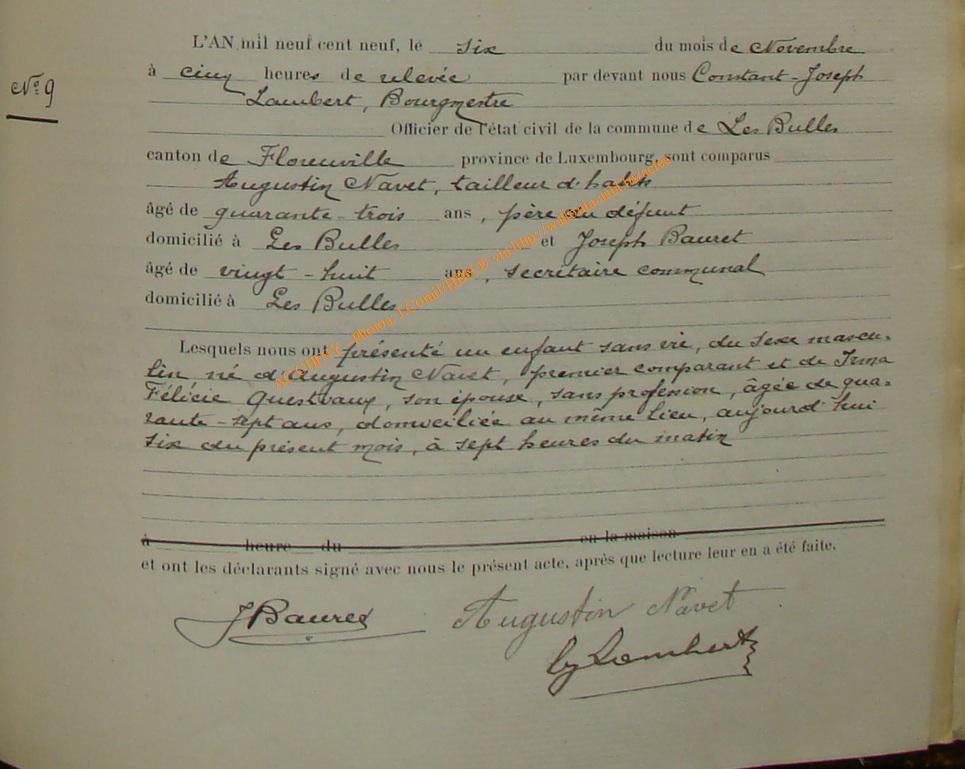 L'AN mil neuf cent neuf, le six du mois de Novembre
No 9
à cinq heures de relevée par devant nous Constant-Joseph
Lambert, Bourgmestre
Officier de l'état civil de la commune de Les Bulles
canton de Florenville province de Luxembourg, sont comparus
Augustin Navet, tailleur d'habits
âgé de quarante-trois ans, père du défunt
domicilié à Les Bulles et Joseph Bauret
âgé de vingt-huit ans, secrétaire communal
domicilié à Les Bulles
Lesquels nous ont présenté un enfant sans vie, du sexe mascu-
lin né d'Augustin Navet, premier comparant et de Irma
Félicie Questvaux, son épouse, sans profession, âgée de qua-
rante-sept ans, domiciliée au même lieu, aujourd'hui
six du présent mois, à sept heures du matin
à heure du en la maison
et ont les déclarants signé avec nous le présent acte, après que lecture leur en a été faite.
J Bauret Augustin Navet
Lambert